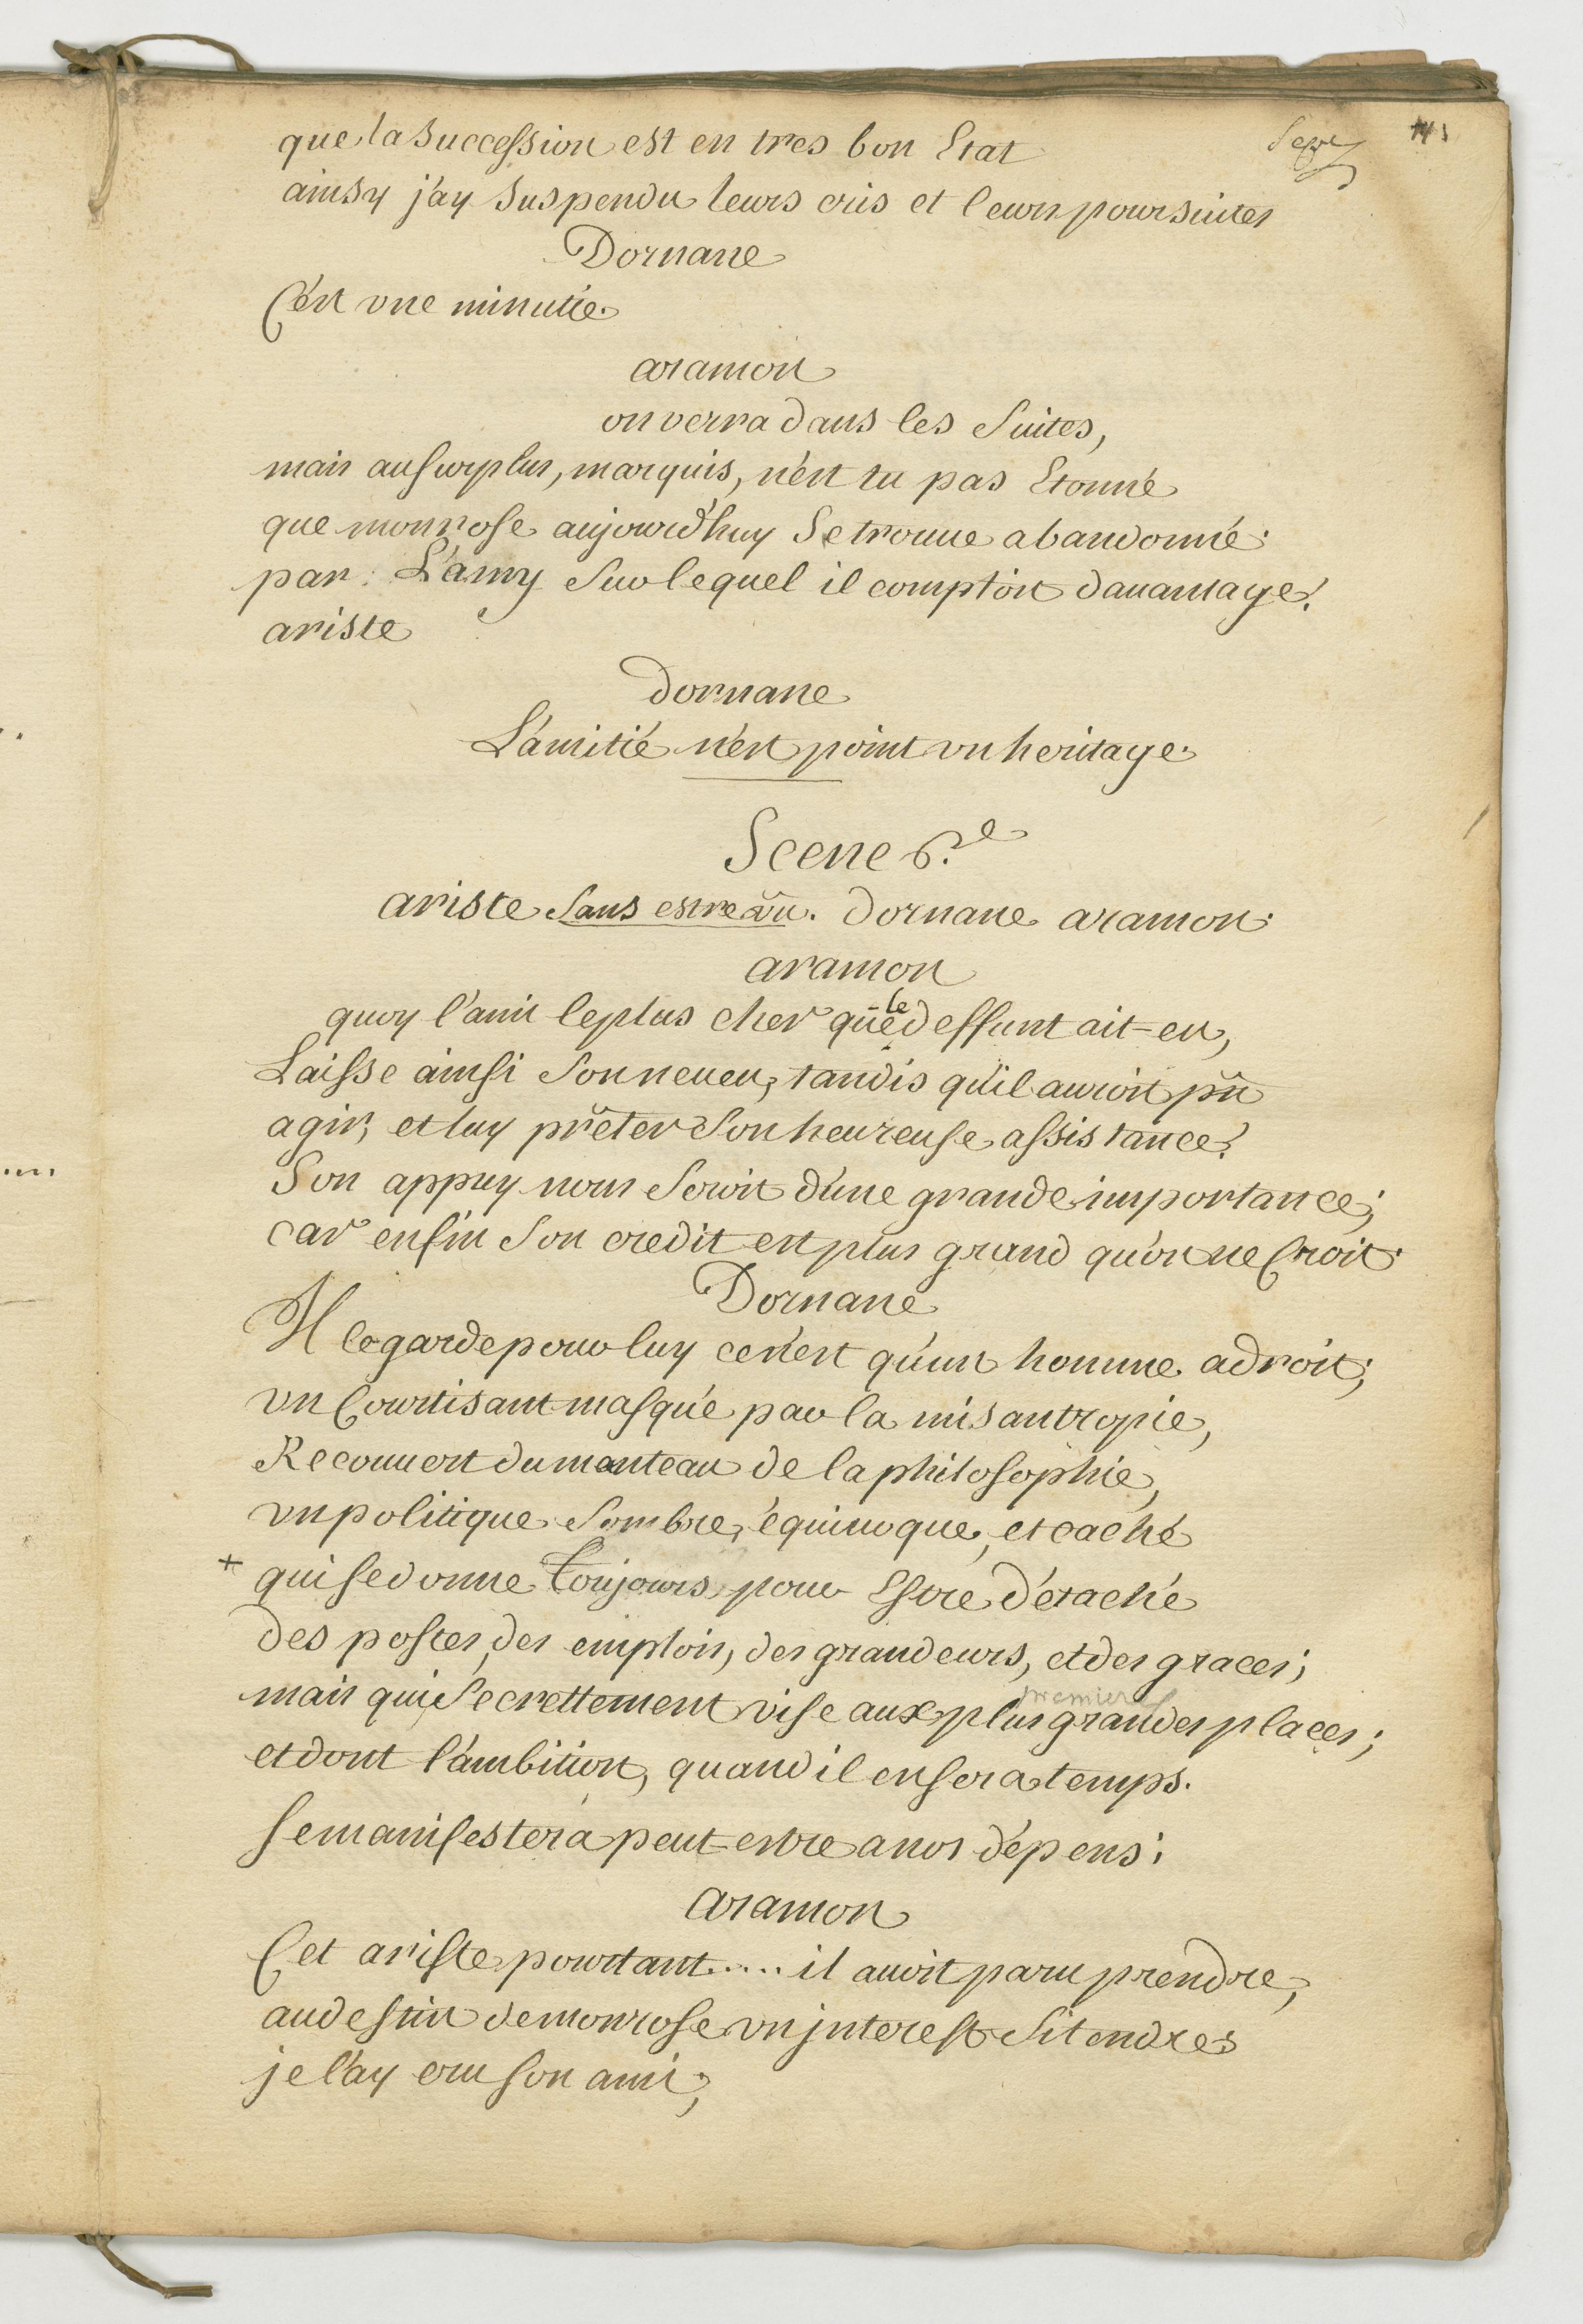 que la Succession est en tres bon Etat
ainsy j'ay Suspendu leurs cris et leurs poursuites
Dornane
C'est une minutie.
aramon
on verra dans les Suites,
mais au surplus, marquis, n'est tu pas Etonné
que monrose aujourd'huy Se trouue abandonné.
par L'amy Sur lequel il comptoit dauantage?
ariste
dornane
L'amitié n'est point vn heritage.
Scene 6.e
ariste Sans estre vû. dornane aramon.
aramon
quoy l'ami le plus cher que le deffunt ait-eu,
Laisse ainsi Son neueu, tandis qu'il auroit pû
agir, et luy prêter Son heureuse assistance?
Son appuy nous Seroit d'une grande importance;
car enfin Son credit est plus grand qu'on ne Croit.
Dornane
Il le garde pour luy ce n'est qu'un homme adroit;
vn Courtisant masqué par la misantropie,
Recouuert du manteau de la philosophie,
vn politique Sombre, équiuoque, et caché
+ qui se donne Toujours pour Estre détaché
des postes, des emplois, des grandeurs, et des graces;
premieres
mais qui Secrettement vise aux plus grandes places;
et dont l'ambition, quand il en sera temps.
se manifestera peut-estre a nos dépens;
aramon
Cet ariste pourtant..... il auoit paru prendre,
au destin de monrose vn jnterest Si tendre
je l'ay cru son ami;